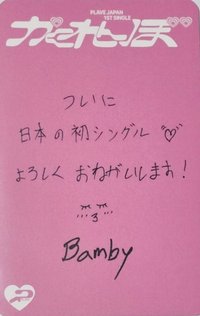 PLAVE JAPAN
1ST SINGLE
かくれんぼ
ついに
日本の初シングル
よろしく おねがいします!
Bamby